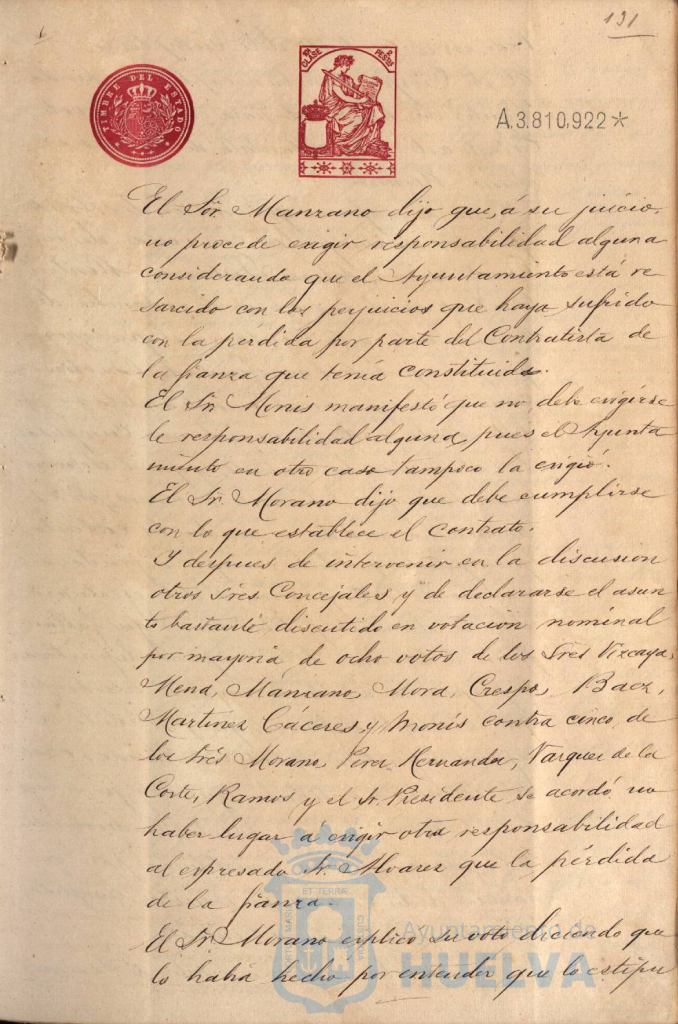 131
TIMBRE DEL ESTADO
CLASE
PESTAS
A.3.810,922*
El Sor. Manzano dijo que, á su juicio,
no procede exigir responsabilidad alguna
considerando que el Ayuntamiento está re
sarcido con los perjuicios que haya sufrido
con la pérdida por parte del Contratista de
la fianza que tenía constituida.
El Sr. Monis manifestó que no debe exigirse
le responsabilidad alguna, pues el Ayunta
miento en otro caso tampoco la exigió.
El Sr. Morano dijo que debe cumplirse
con lo que establece el contrato.
Y despues de intervenir en la discusion
otros Sres Concejales y de declararse el asun
to bastante discutido en votacion nominal
por mayoria de ocho votos de los Sres Vizcaya,
Mena, Manzano, Mora, Crespo, Baez,
Martinez Cáceres y Monis contra cinco, de
los Sres Morano, Perez Hernandez, Vazquez de la
Corte, Ramos y el Sr. Presidente se acordó no
haber lugar á exigir otra responsabilidad
al expresado Sr. Alvarez que la pérdida
de la fianza.
El Sr. Morano explicó su voto diciendo que
lo habia hecho por entender que lo estipu
ET TERRA
Ayuntamiento de
HUELVA